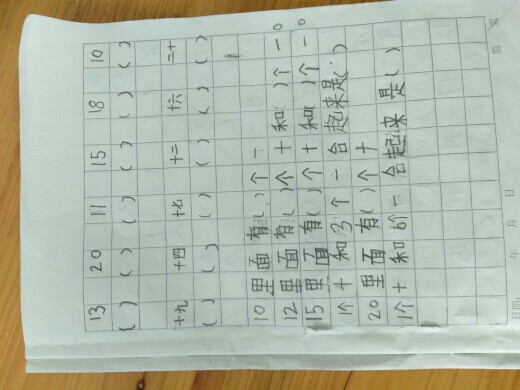 13 20 11 15 18 10
( ) ( ) ( ) ( ) ( ) ( )
十九 十四 十七 十二 十六 二十
( ) ( ) ( ) ( ) ( ) ( )
10里面有( )个一
12里面有( )个十和( )个一。
15里面有( )个十和( )个一。
1个十和3个一合起来是( )
20里面有( )个十
1个十和6个一合起来是( )
年 月 日